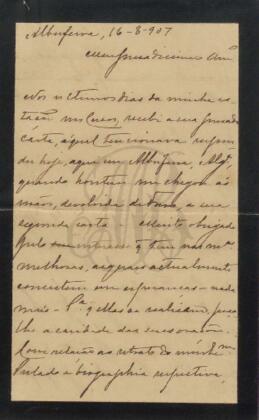 Albufeira, 16-8-907
Meu presadissimo Amº
Nos ultimos dias da minha es-
tada nos Cucos, recebi a sua presada
carta, á qual tencionava respon-
der hoje, aqui em Albufeira,
quando hontem me chegou ás
mãos, devolvida de, a sua
segunda carta Muito obrigado
pelo interesse q tem nas mas
melhoras, as quaes actualmente
consistem em esperanças - nada
mais - Pa q ellas se realizem, peço-
lhe a caridade das suas orações.
Com relação ao retrato do
Prelado e biographia respectiva,